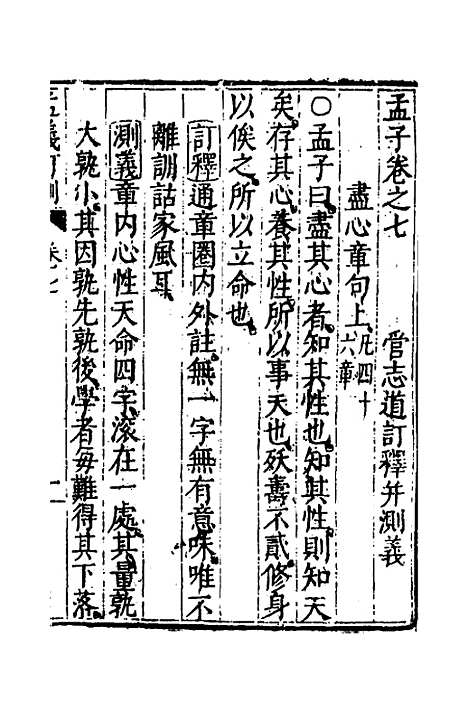 孟子卷之七
管志道訂釋并測義
盡心章句上凡四十六章
○孟子曰盡其心者知其性也知其性則知天
矣存其心養其性所以事天也殀壽不貳修身
以俟之所以立命也
訂釋通章圈內外註無一字無有意味唯不
離訓詁家風耳
測義章內心性天命四字滚在一處其量孰
大孰小其因孰先孰後學者每難得其下落
孟義訂測 卷七 一